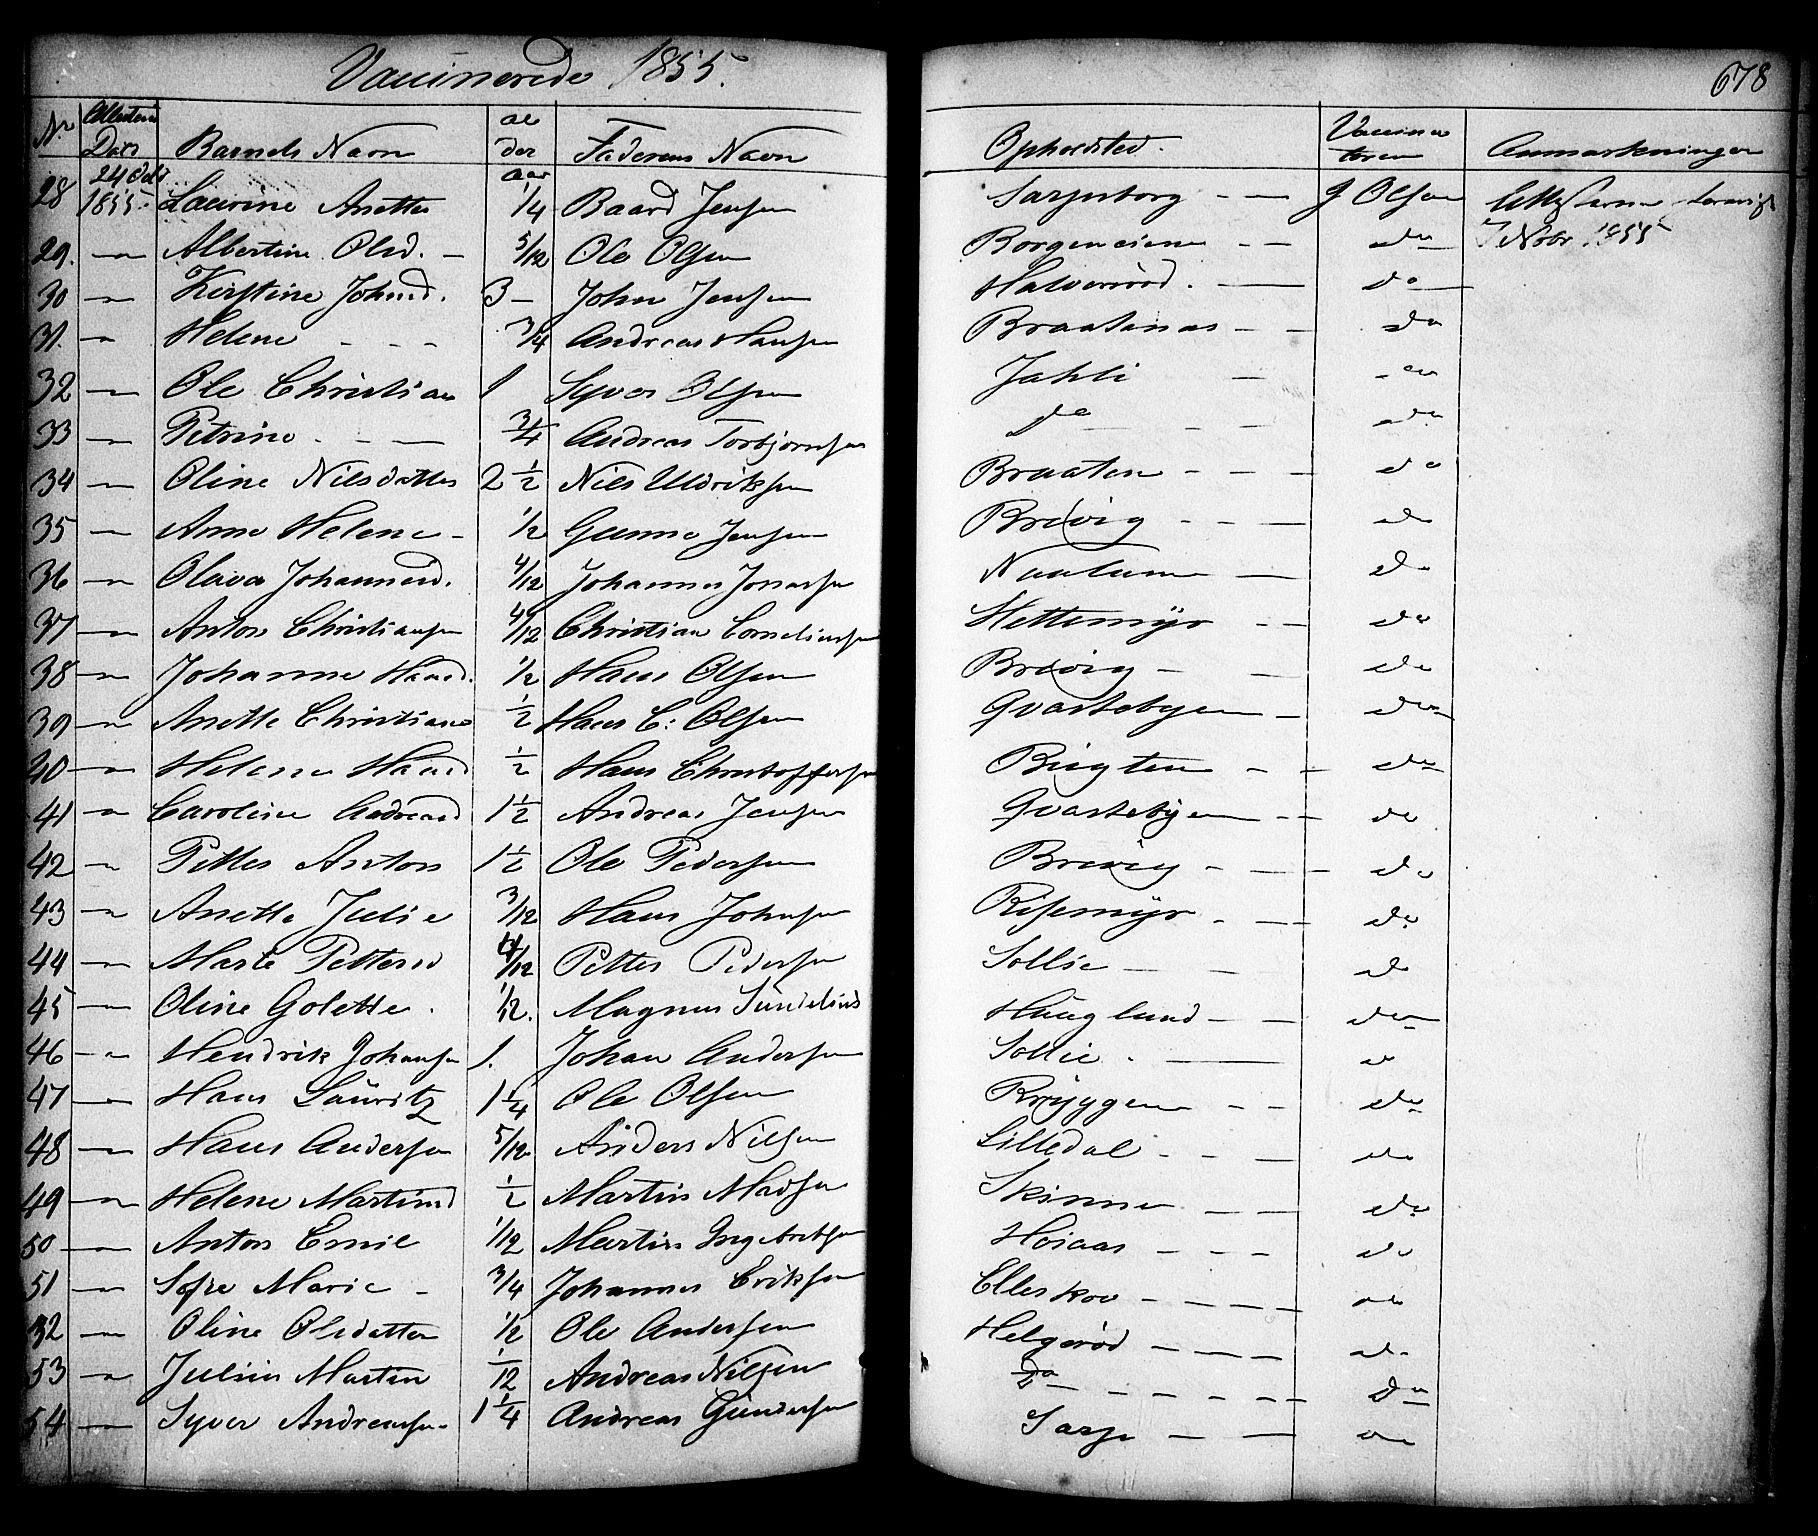 Vaccinerede 1855.
678
Nr Attestens Dato Barnets Navn Alder aar Faderens Navn Opholdsted. Vaccinatoren Anmærkninger
28 24 Octbr 1855. Laurine Anette 1/4 Baard Jensen Sarpsborg - - J Olsen
7 Nobr. 1855
29. -"- Albertine Olsd. - 5/12 Ole Olsen - - do
30 -"- Kirstine Johnsd. 3 - John Jensen Halverröd. - do
31. -"- Helene - - - 3/4 Andreas Hansen Braatenas - - do
32 -"- Ole Christian 1 Syver Olsen Jahli - - do
33 -"- Petrine. - - 3/4 Andreas Torbjørnsen do - - do
34 -"- Oline Nilsdatter 2 1/2 Niels Uldriksen Braaten - - - do
35 -"- Anne Helene - 1/2 Gunne Jensen Brevig - - - do
36 -"- Olava Johannesd. 4/12 Johannes Jonassen - - do
37 -"- Anton Christiansen 4/12 Christian Corneliussen Hettemyr - - do
38 -"- Johanne Hansd. 1/2 Hans Olsen Brevig - - do
39 -"- Anette Christiane 1/2 Hans C: Olsen Qvastebyen - do
40 -"- Helene Hansd 1/2 Hans Christoffersen - - do
41 -"- Caroline Andreasd 1 1/2 Andreas Jensen Qvastebyen - - do
42 -"- Petter Anton 1 1/2 Ole Pedersen Brevig - - - do
43 -"- Anette Julie 3/12 Hans Johnsen Risemyr - - - do
44 -"- Marte Pettersd 4/12 Petter Pedersen Sollie - - do
45 -"- Oline Golette. 1/12. Magnus Sundelius Hauglund - - do
46 -"- Hendrik Johansen 1. Johan Andersen Sollie. - do
47 -"- Hans Lauritz 1 1/4 Ole Olsen Brÿggen - - do
48 -"- Hans Andersen 5/12 Anders Nilsen Lilledal - - - do
49 -"- Helene Martinsd 1/2 Martin Madsen Skinne - - do
50 -"- Anton Emil 1/12 Martin Ingebretsen Höiaas - - - do
51 -"- Sofie Marie - 3/4 Johannes Eriksen Elleskov - - - - do
32 -"- Oline Olsdatter 1/2 Ole Andersen Helgeröd - - - - do
53 -"- Julius Martin 1/12 Andreas Nilsen do - - - - - do
54 -"- Syver Andreassen 1 1/4 Andreas Gundersen Sarp - - do